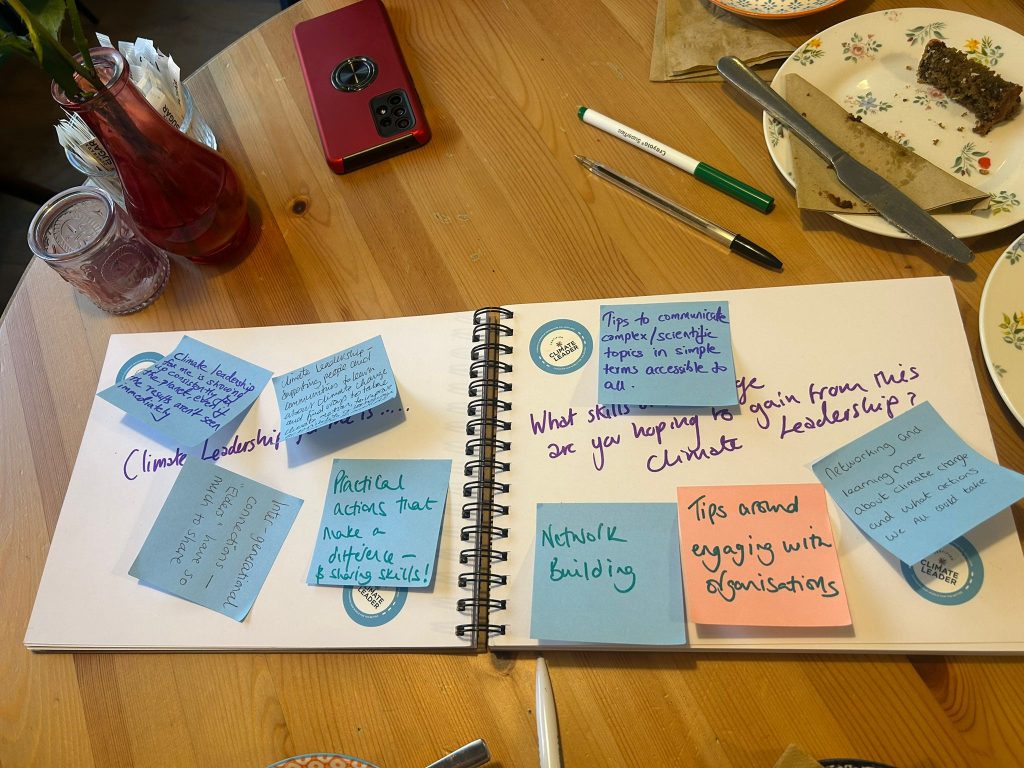 SUGAR
Crayola SuperTips
Climate leadership
for me is showing
up consistently for
the planet, even if
the results aren't seen
immediately
Climate leadership -
supporting people and
communities to learn
about climate change
and find ways to
Climate Leadership for me is.....
Inter generational
connections -
"Elders" have so
much to share
Practical
actions that
make a
difference -
& sharing skills!
CLIMATE
LEADER
CLIMATE
LEADER
Tips to communicate
complex/scientific
topics in simple
terms accessible to
all.
What skills
are you hoping to gain from this
Climate Leadership?
Network
Building
Tips around
engaging with
organisations
Networking and
learning more
about climate change
and what actions
we all could take
CLIMATE
LEADER